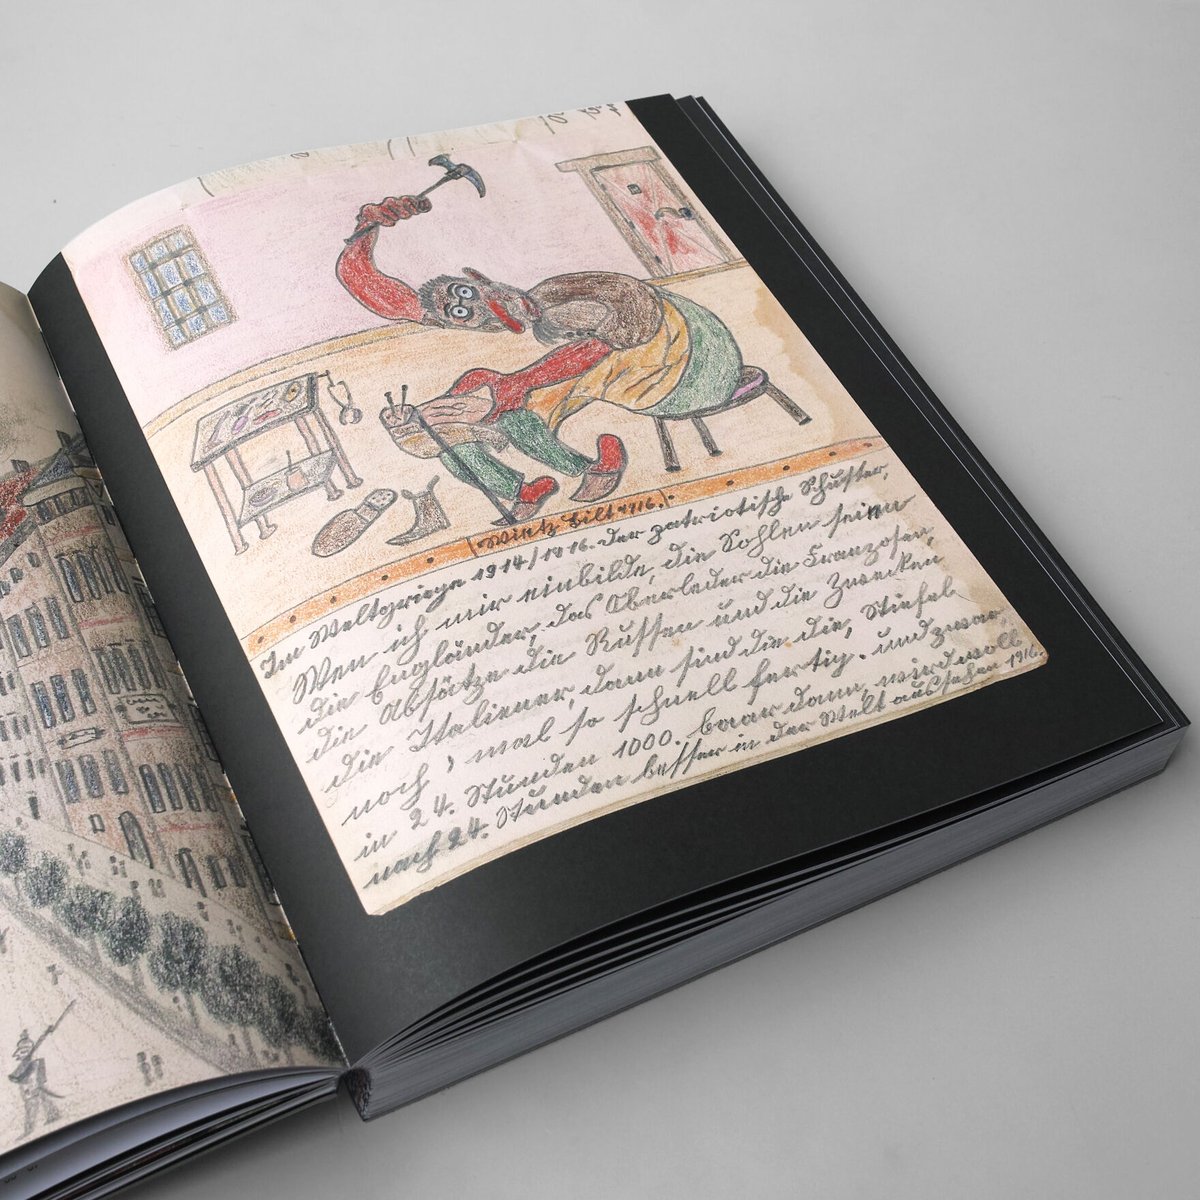 Witz bilt 1916.
Im Weltgriege 1914/1916. der patriotische Schuster,
Wen ich mir einbilde, die Sohlen seien
die Engländer, das Oberleder die Franzosen,
die Absätze die Russen und die Zwecken
die Italiener, dann sind die die, Stiefel
noch, mal so schnell fertig. und zwar,
in 24. Stunden 1000, baar dann, wird woll
nach 24. Stunden besser in der Welt aussehen 1916.